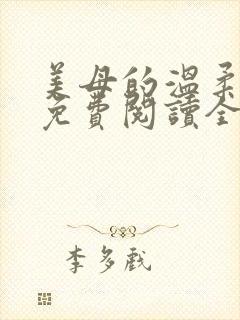 美母的溫柔
免費閱讀全
李多戲